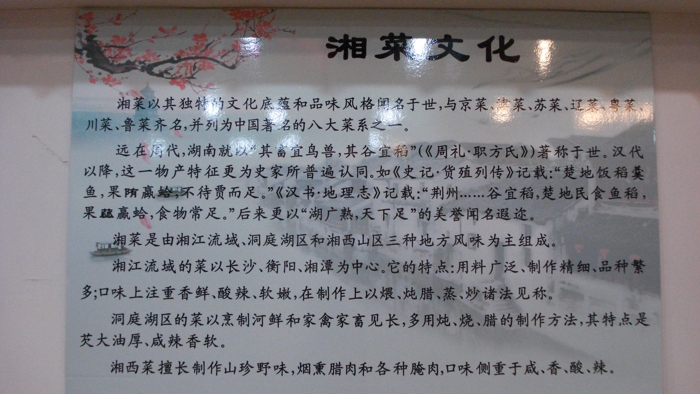 湘菜文化
湘菜以其独特的文化底蕴和品味风格闻名于世,与京菜、菜、苏菜、辽菜、粤菜、
川菜、鲁菜齐名,并列为中国著名的八大菜系之一。
远在周代,湖南就以“其畜宜鸟兽,其谷宜稻”(《周礼·职方氏》)著称于世。汉代
以降,这一物产特征更为史家所普遍认同。如《史记·货殖列传》记载:“楚地饭稻羹
鱼,果隋蠃蛤,不待贾而足。”《汉书·地理志》记载:“荆州……谷宜稻,楚地民食鱼稻,
果蓏蠃蛤,食物常足。”后来更以“湖广熟,天下足”的美誉闻名遐迩。
湘菜是由湘江流域、洞庭湖区和湘西山区三种地方风味为主组成。
湘江流域的菜以长沙、衡阳、湘潭为中心。它的特点:用料广泛、制作精细、品种繁
多;口味上注重香鲜、酸辣、软嫩,在制作上以煨、炖腊、蒸、炒诸法见称。
洞庭湖区的菜以烹制河鲜和家禽家畜见长,多用炖、烧、腊的制作方法,其特点是
芡大油厚、咸辣香软。
湘西菜擅长制作山珍野味,烟熏腊肉和各种腌肉,口味侧重于咸、香、酸、辣。